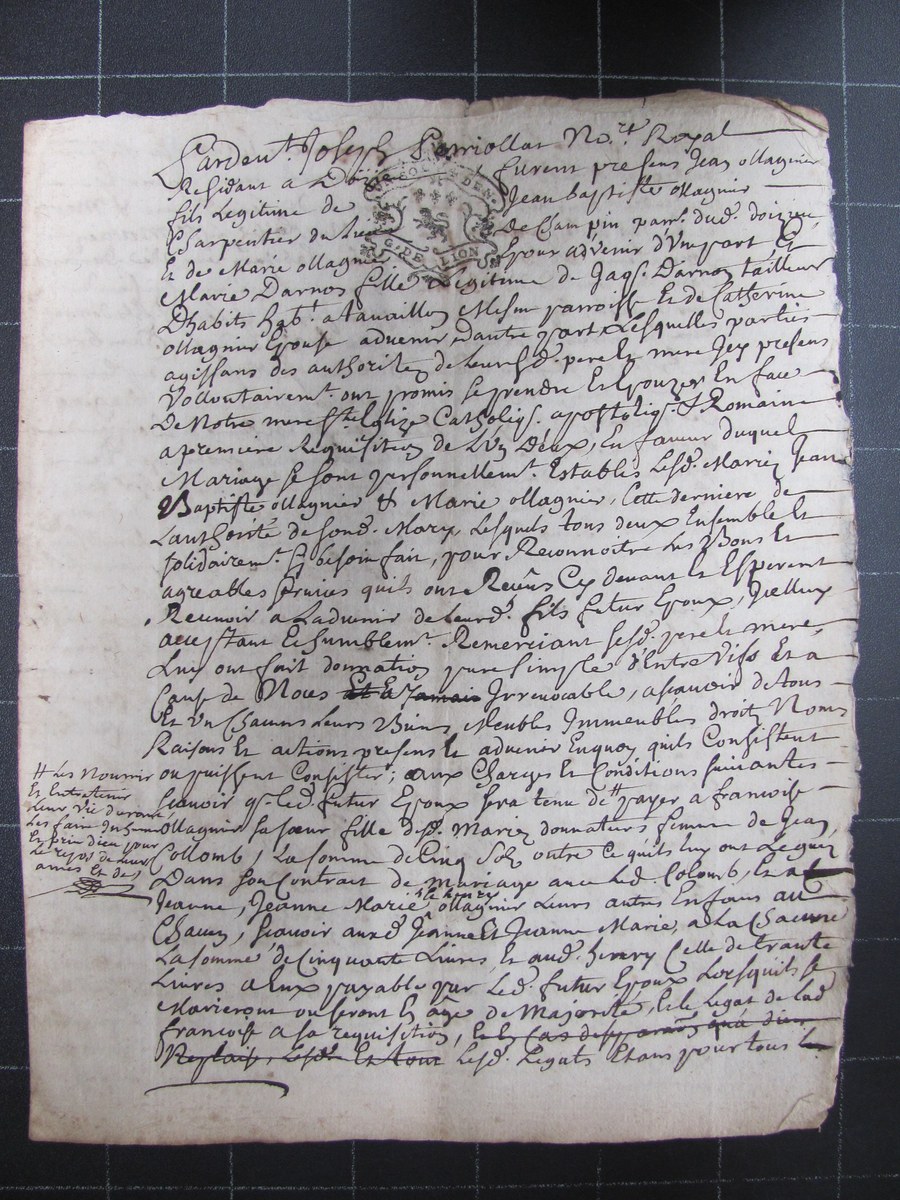 Pardent. Joseph Perriollat No.re Royal
Residant a Doizieu furent presens Jean ollagnier
fils Legitime de Jean Baptiste ollagnier
Charpentier du lieu De Champin parr. dud. doizieu
Et de Marie ollagnier Epour advenir d'Une part Et
Marie Darnon fille Legitime de Jaqs. Darnon tailleur
Dhabits habt. a tavaillon Mesme parroisse Et de Catherine
ollagnier Epouse advenir dautre part Lesquelles parties
agissans des authorités de leursd. pere Et mere Icy presens
Vollontairemt. ont promis se prendre Et Epouzer En face
De Notre mere Ste. Eglize Catholiq. apostoliq. & Romaine
a premiere Requisition de L'Un Deux, En faveur duquel
Mariage se sont personnellemt. Establis Lesd. Mariés Jean
Baptiste ollagnier & Marie ollagnier, Cette derniere de
Lauthorité de sond. Mary, Lesquels tous deux Ensemble Et
solidairemt. sy besoin fait, pour Reconnoitre Les Bons Et
agreables services quils ont Receûs Cy devant Et Esperent
Recevoir a Ladvenir de Leurd. fils futur Epoux, Icelluy
acceptant Et humblemt. Remerciant sesd. pere Et mere,
Luy ont fait donnation pure simple d'Entre Vifs Et a
Cause de Noces Et a Jamais Irrevocable, ascavoir de tous
Et Un Chacuns Leurs Biens Meubles Immeubles droit Noms
Raisons Et actions presens Et advenir Enquoy quils Consistent
ou puissent Consister; aux Charges Et Conditions suivantes
scavoir q. Led. futur Epoux sera tenu de # payer a francoise
ollagnier sa sœur fille desd. Mariés donnateurs femme de Jean
Collomb, La somme de Cinq Sols outre Ce quils luy ont Legué
Dans son Contrat de mariage avec Led. Colomb, Et a
Jeanne, Jeanne Marie, & henry ollagnier Leurs autres Enfans au
Chacun, scavoir auxd. Jeanne Et Jeanne Marie, a La Chacune
La somme de Cinquante Livres, Et aud. henry Celle de trante
Livres a Eux payable par Led. futur Epoux Lorsquils se
Marieront ou seront En âge de Majorité, Et le Legat de Lad.
francoise a sa requisition, Et le Cas desp. arrivé qua dieu
Ne plaise, Lesd. Et tout Lesd. Legats Etans pour tous L
# Les Nourrir
Et Entretenir
Leur Vie durant,
Les faire Inhumer
Et prier dieu pour
Le repos de Leurs
ames Et de